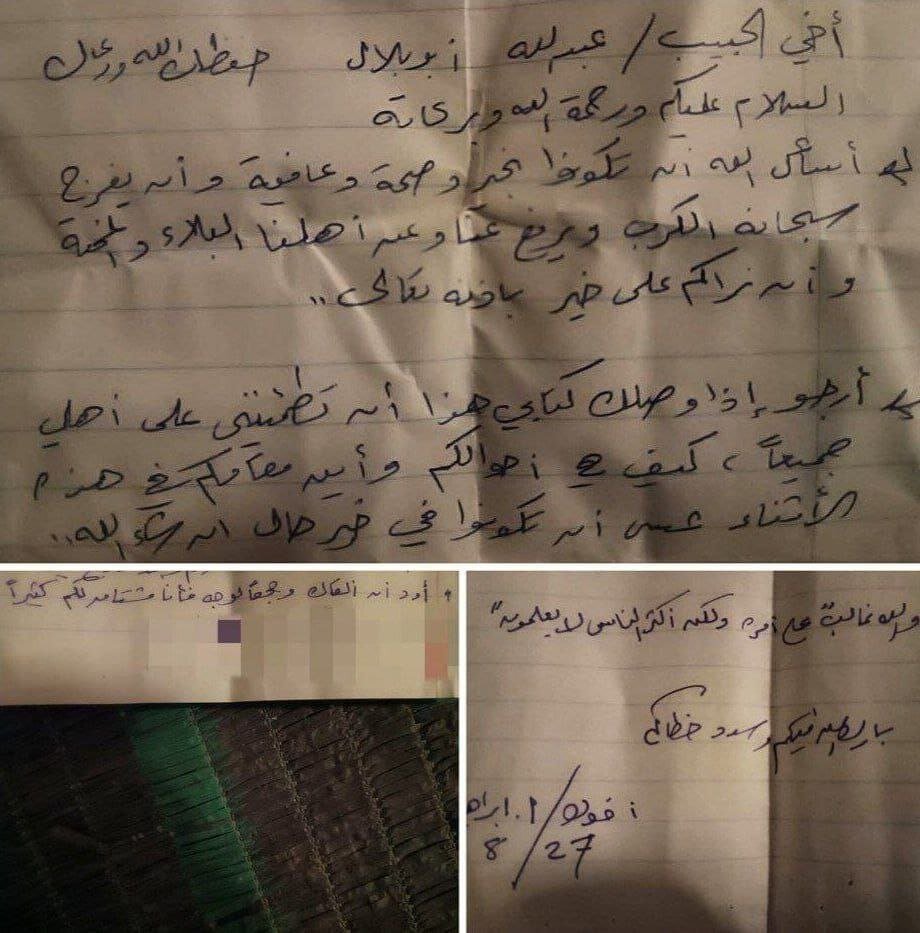 أخي الحبيب / عبد الله أبو بلال حفظك الله ورعاك
السلام عليكم ورحمة الله وبركاته
أسأل الله أن تكونوا بخير وصحة وعافية وأن يفرج
سبحانه الكرب ويرفع عنا وعن أهلنا البلاء والمحنة
وأن نراكم على خير بإذنه تعالى ..
أرجو إذا وصلك كتابي هذا أن تطمئنني على أهلي
جميعاً ، كيف هي أحوالكم وأين مقامكم في هذه
الأثناء عسى أن تكونوا في خير حال ان شاء الله ..
أود أن ألقاك وجهاً لوجه فأنا مشتاق لكم كثيراً
والله غالبٌ على أمره ولكن أكثر الناس لا يعلمون"
بارك الله فيكم وسدد خطاكم
أخوك / ا. ابراه
27 / 8